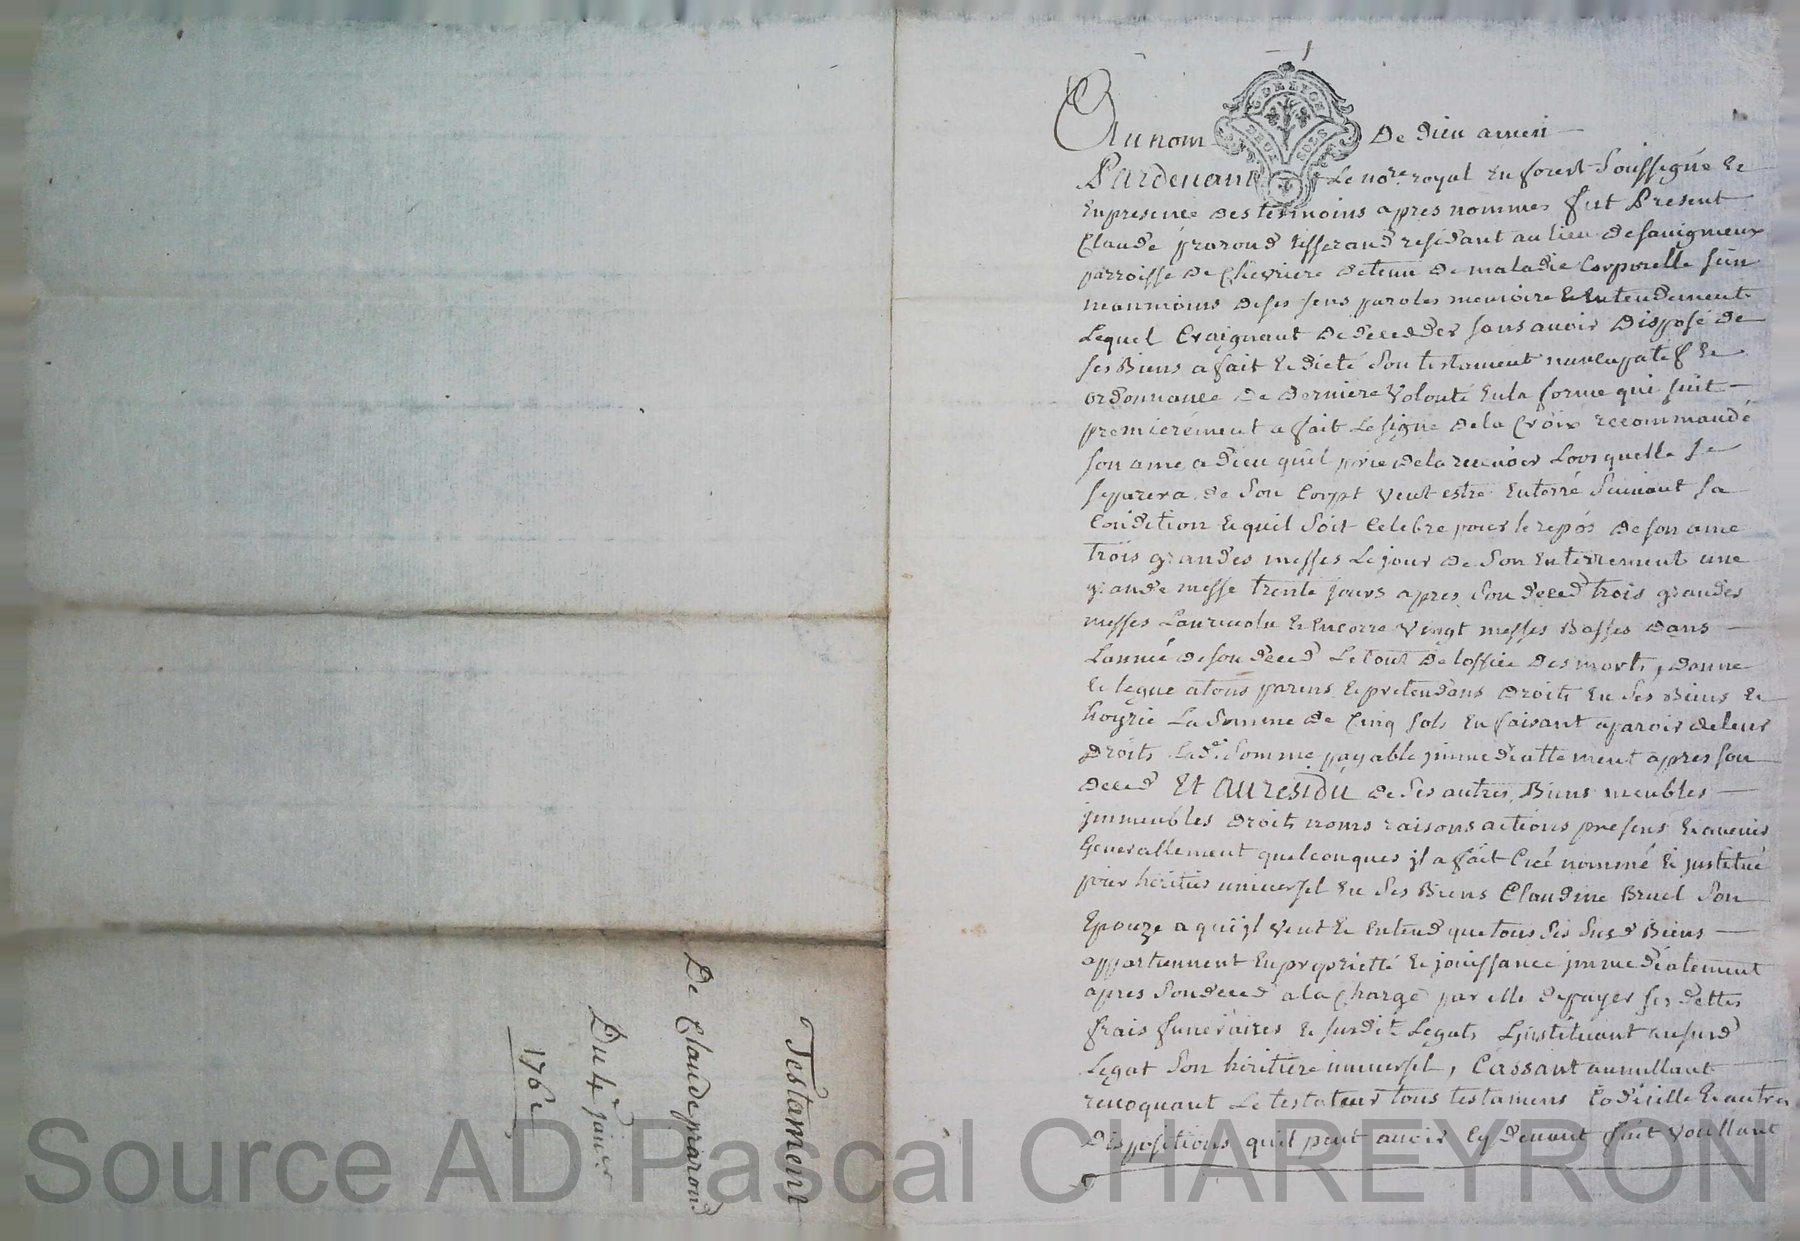 Testament
De Claude praroud
Du 4e janver
1762
Au nom De Dieu amen
G. DE LYON
DEUX SOLS
Pardevant Le nore royal en forest soussigné et
En presence des temoins apres nommes fut Present
Claude praroud tisserand residant au lieu de savigneux
parroisse de Chevriere detenu de maladie Corporelle sain
neanmoins de ses sens paroles memoire et Entendement
Lequel Craignant de deceder sans avoir Disposé de
ses Biens a fait et dicté son testament nuncupatif et
ordonnance de derniere volonté en la forme qui suit
premierement a fait le signe de la Croix recommandé
son ame a Dieu quil prie de la recevoir Lors quelle se
separera de son Corps veut estre Enterré suivant sa
Condition et quil soit Celebre pour le repos de son ame
trois grandes messes Le jour de son Enterrement une
grande messe trente jours apres son deced trois grandes
messes Lanuevolu et Encorre vingt messes Basses dans
Lannée de son deced Le tout de loffice des morts, donne
et legue a tous parens et pretendans droits en ses Biens et
hoyrie La somme de Cinq sols En faisant aparoir de leur
Droits Lade somme payable immediattement apres son
deced Et au residu de ses autres Biens meubles
jmmeubles droits noms raisons actions presens et avenir
Generallement quelconques jl a fait Creé nommé et jnstitué
pour heritier universel en ses Biens Claudine Bruel son
Epouze a qui jl veut et entend que tous ses susd Biens
appartiennent en proprietté et jouissance jmmediatement
apres son deced a la Charge par elle de payer ses dettes
frais funeraires et susdit Legats Linstituant au susd
Legat son heritiere universel, Cassant annullant
revoquant Le testateur tous testamens Codicille et autres
Dispositions quil peut avoir Cy devant fait voullant
Source AD Pascal CHAREYRON